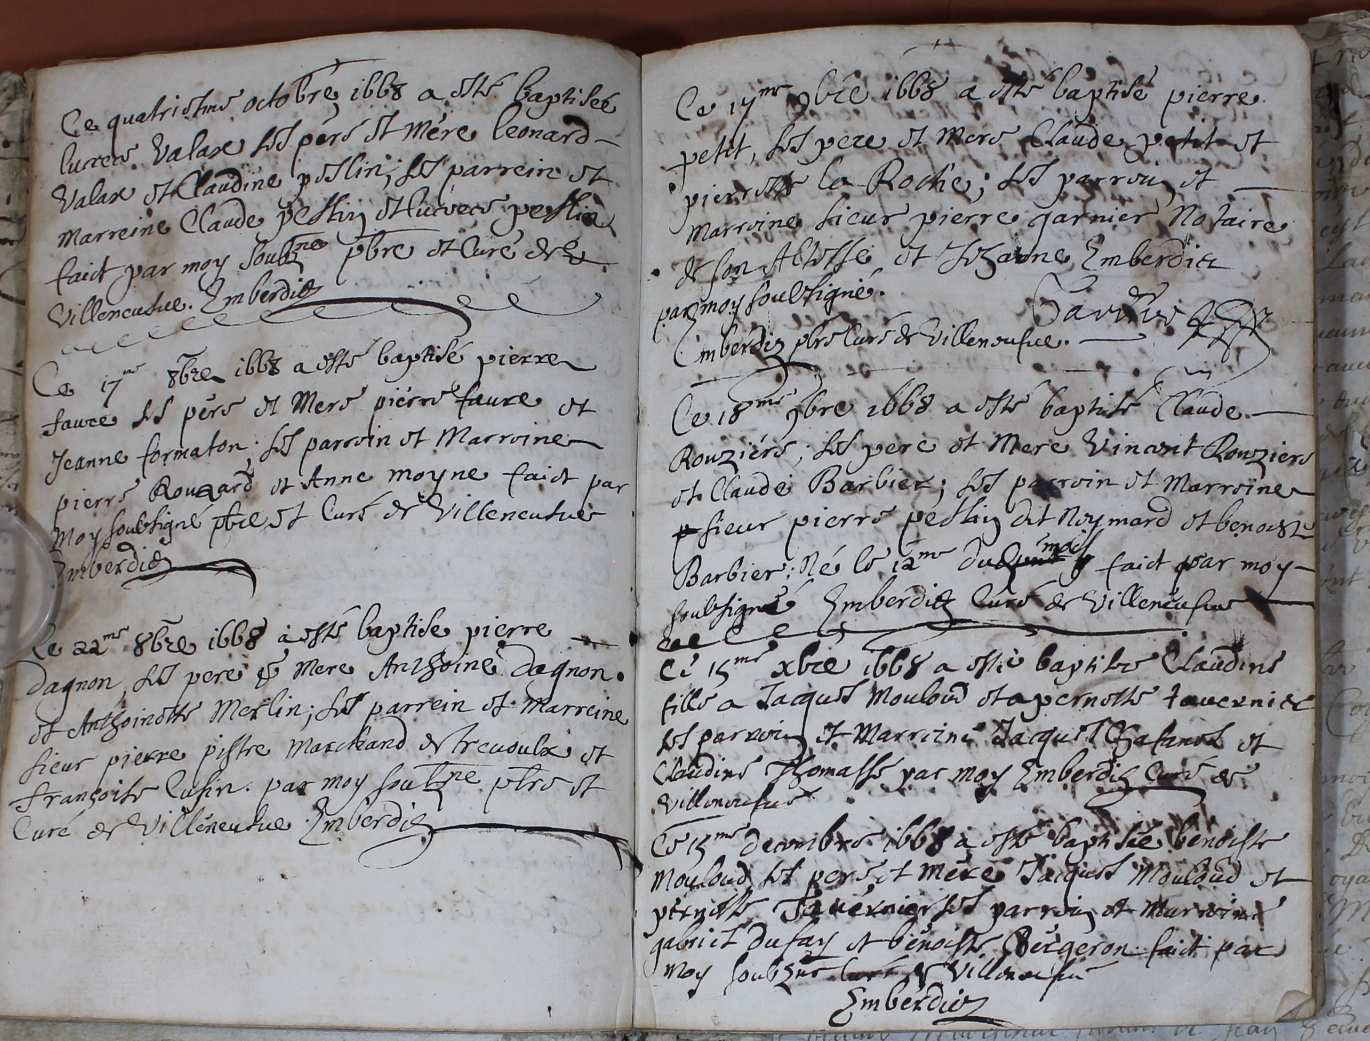 Ce quatriesme octobre 1668 a esté baptisée
lucrece Valaxe ses pere et mere leonard
Valax et Claudine peslin; ses parrein et
marreine Claude peslin et lucrece peslin
faict par moy soubsne pbre et Curé de
Villeneufue. Emberdie
Ce 17me 8bre 1668 a esté baptisé pierre
faure ses pere et Mere pierre faure et
Jeanne formaton. ses parroin et Marroine
pierre Rouzard et Anne moyne faict par
Moy soubsigné pbre et Curé de Villeneufue
Emberdie
Ce 22me 8bre 1668 a esté baptisé pierre
Dagnon, ses pere & mere Anthoine Dagnon.
et Anthoinette Merlin; ses parrein et Marreine
sieur pierre pistre Marchand de trevoulx et
françoise Cusin. par moy soubsne pbre et
Curé de Villeneufue Emberdie
Ce 17me 9bre 1668 a esté baptisé pierre
petit, ses pere et mere Claude petit et
pierrette la Roche; ses parroin et
Marroine sieur pierre garnier Notaire
de son Altesse et Suzanne Emberdie
par moy soubsigné.
Emberdie pbre Curé de Villeneufue.
Ce 18me 9bre 1668 a esté baptisé Claude
Rouziere; ses pere et Mere Vincent Rouziere
et Claude Barbier; ses parroin et Marroine
sieur pierre peslin dit Noymard et benoiste
Barbier; Né le 12me du mois faict par moy
soubsigné Emberdie Curé de Villeneufue
Ce 15me xbre 1668 a esté baptisée Claudine
fille a Jaques Mouloud et a pernette tavernier
ses parroin et Marroine Jacques et
Claudine Thomasse par moy Emberdie Curé de
Villeneufue
Ce 15me decembre 1668 a esté baptisée benoiste
Mouloud ses pere et Mere Jacques Mouloud et
pernette Tavernier ses parroin et Marroine
gabriel Dufay et benoiste Bergeron. faict par
Moy soubsne Curé de Villeneufue
Emberdie